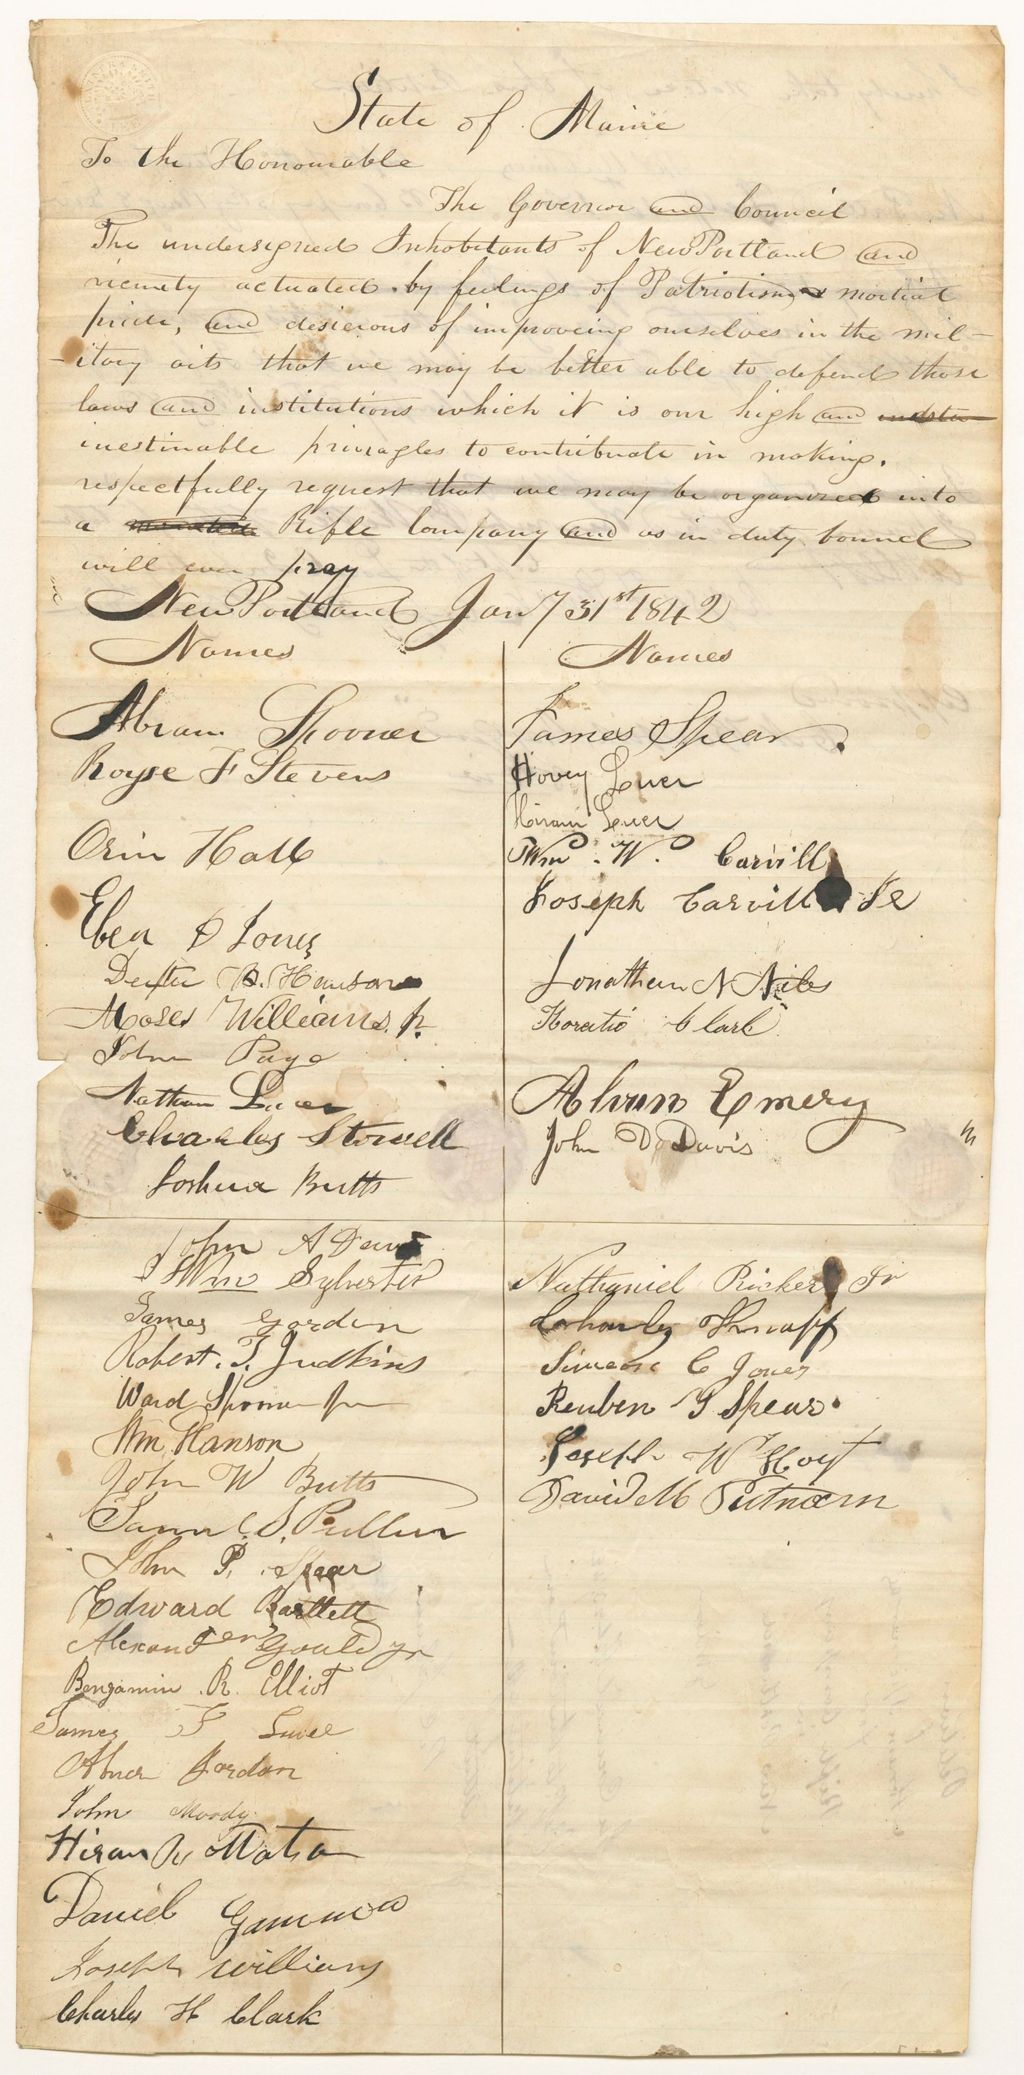 State of Maine
To the Honourable
The Governor and Council
The undersigned Inhabitants of New Portland and
vicinety actuated by feelings of Patriotism & martial
pride, and desierous of improveing ourselves in the mil-
-itary arts that we may be better able to defend those
laws and institutions which it is our high and
inestimable privilages to contribute in making.
respectfully request that we may be organized into
a Rifle Company and as in duty bound
will ever pray
New Portland Jany 31st 1842
Names
Abram Spooner
Royse F Stevens
Orin Hall
Eben D Jones
Dexter B. Hanson
Moses Williams Jr.
John Page
Nathan Luce
Charles Stowell
Joshua Butts
John A Davis
Wm Sylvester
James Gordon
Robert. T. Judkins
Ward Spooner Jr
Wm Hanson
John W Butts
Saml. S. Pullen
John P. Spear
Edward Bartlett
Alexander Gould Jr
Benjamin R. Elliot
James F Luce
Abner Jordan
John Moody
Hiram Watson
Daniel Gammon
Joseph Williams
Charles H Clark
Names
James Spear.
Hovey Luce
Hiram Luce
Wm. W. Carvill
Joseph Carvill Jr
Jonathan N Niles
Horatio Clark
Alvan Emery
John D Davis
Nathaniel Ricker Jr
Charles Knapp
Simeon C Jones
Reuben G Spear.
Joseph W Hoyt
David M Putnam